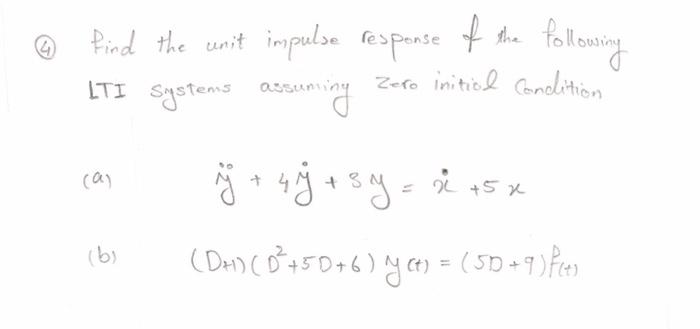 ④ Find the unit impulse response of the following
LTI systems assuming Zero initial Condition
(a) ÿ + 4ẏ + 3y = ẋ + 5x
(b) (D+1)(D²+5D+6) y(t) = (5D+9)f(t)